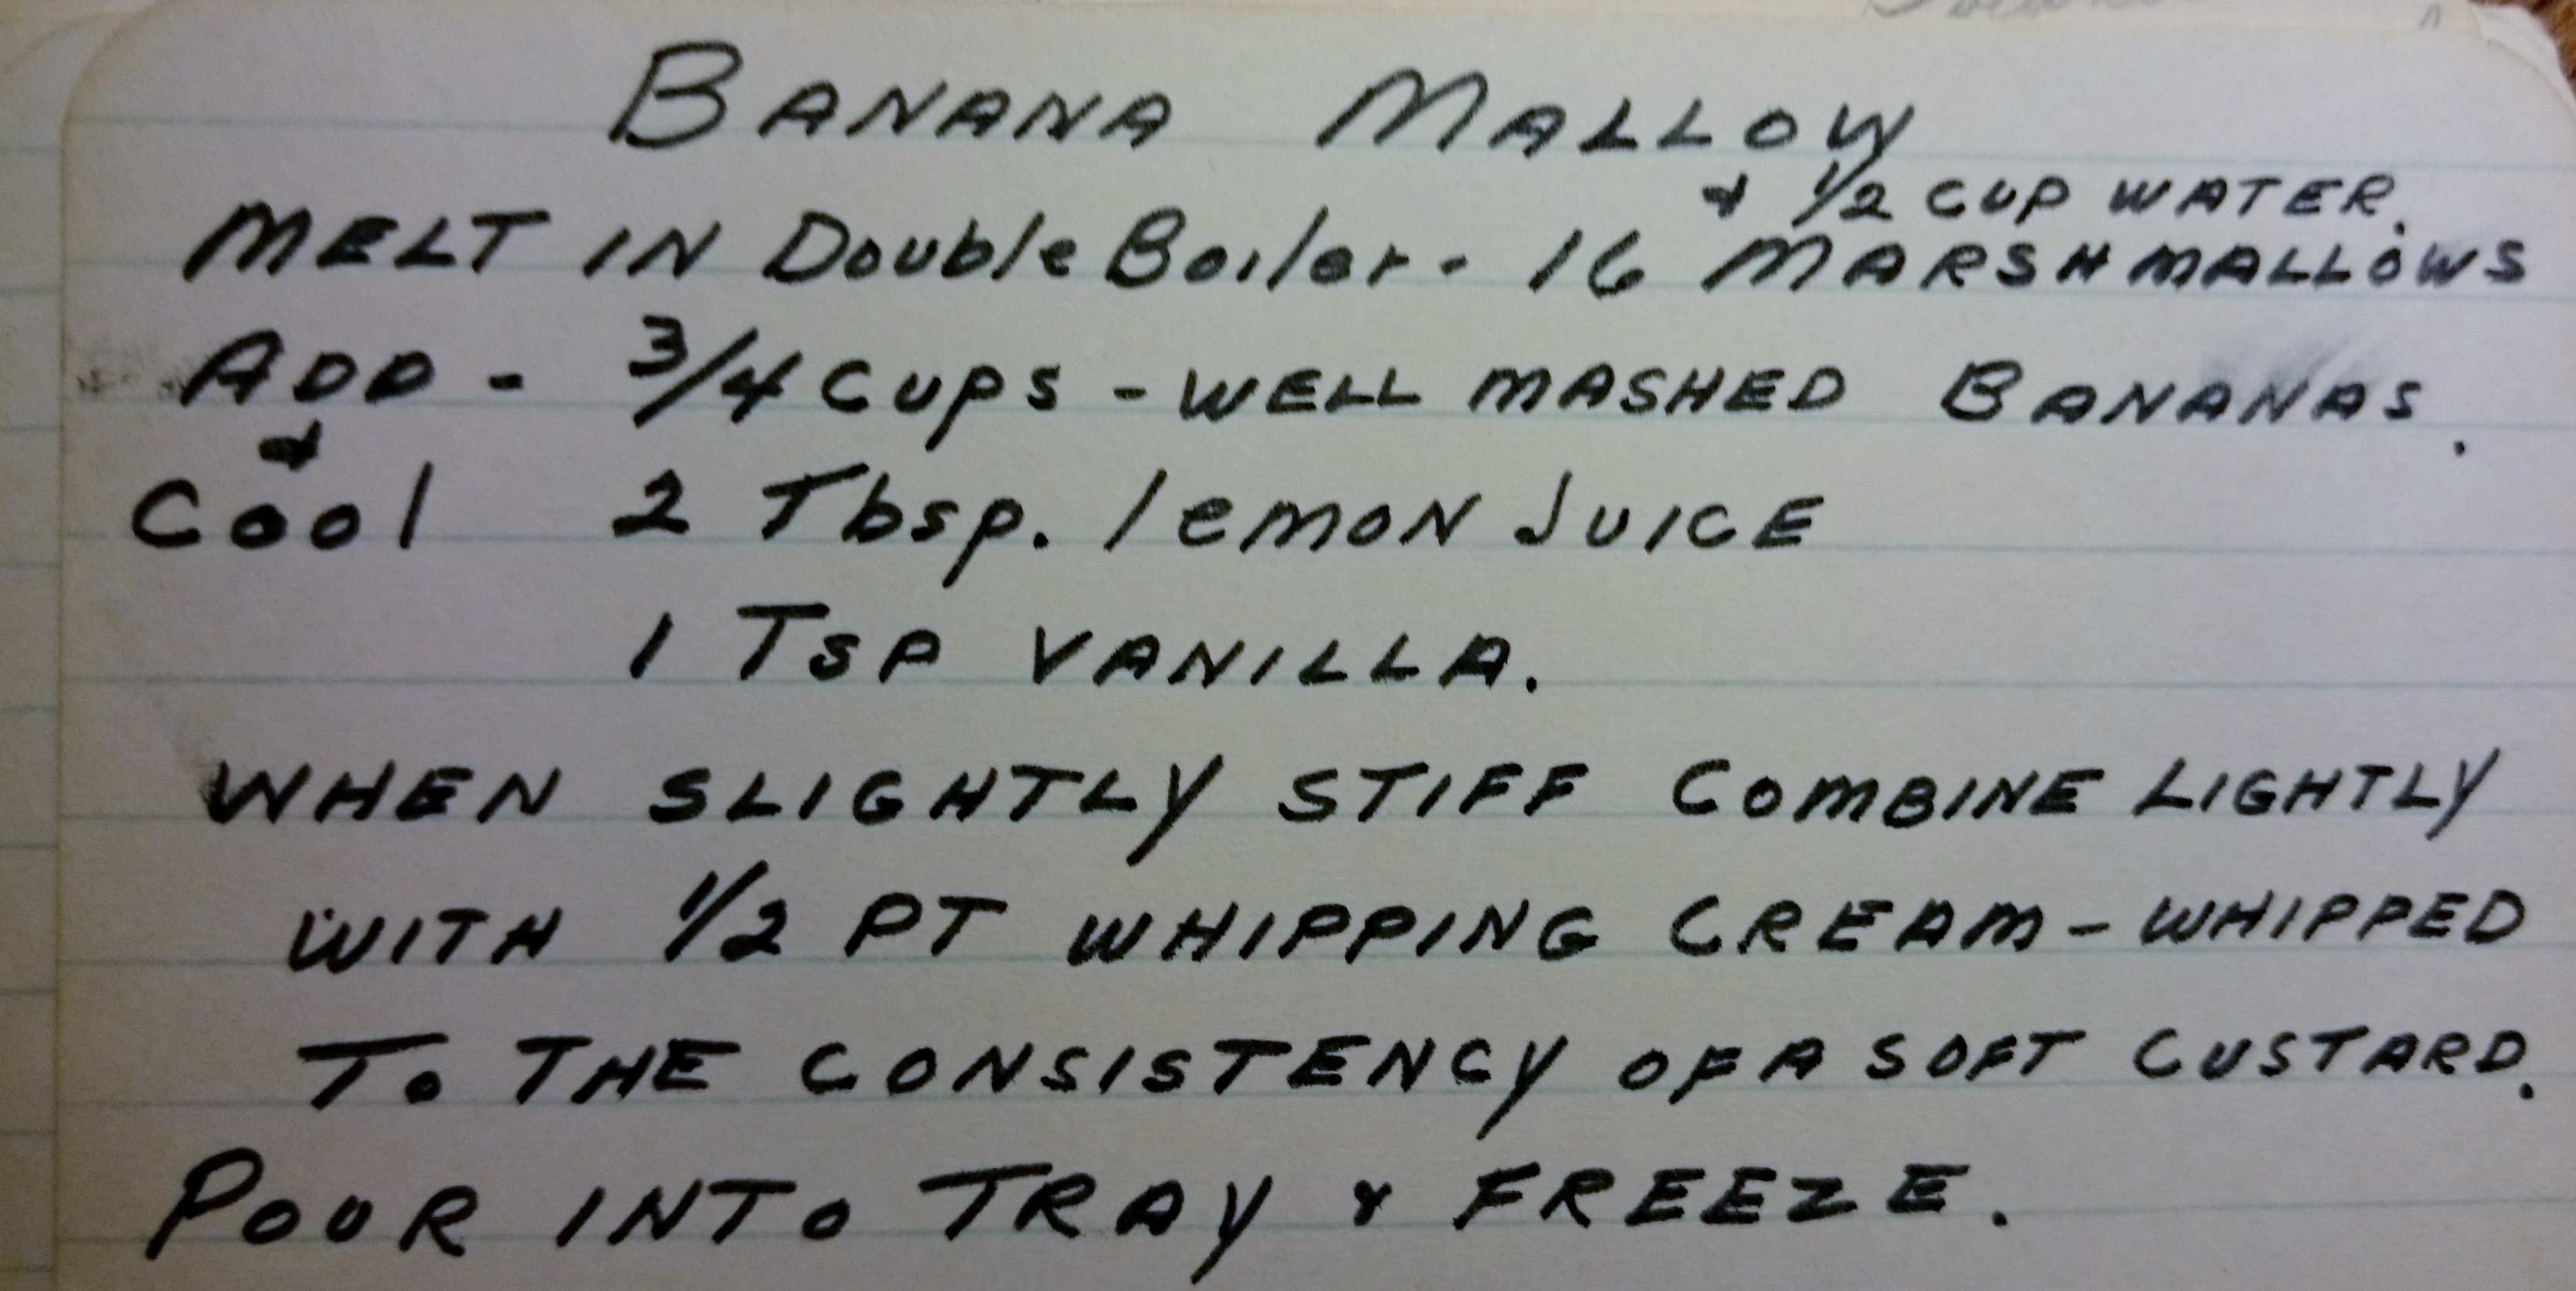 BANANA MALLOW
& 1/2 CUP WATER.
MELT IN Double Boiler - 16 MARSHMALLOWS
ADD - 3/4 Cups - WELL MASHED BANANAS.
&
Cool 2 Tbsp. lemon JUICE
1 Tsp VANILLA.
WHEN SLIGHTLY STIFF COMBINE LIGHTLY
WITH 1/2 PT WHIPPING CREAM - WHIPPED
To THE CONSISTENCY OF A SOFT CUSTARD.
POUR INTO TRAY & FREEZE.